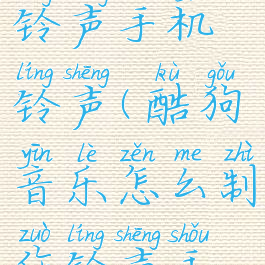 铃声手机
líng shēng kù gǒu
铃声(酷狗
yīn lè zěn me zhì
音乐怎么制
zuò líng shēng shǒu
作铃声手